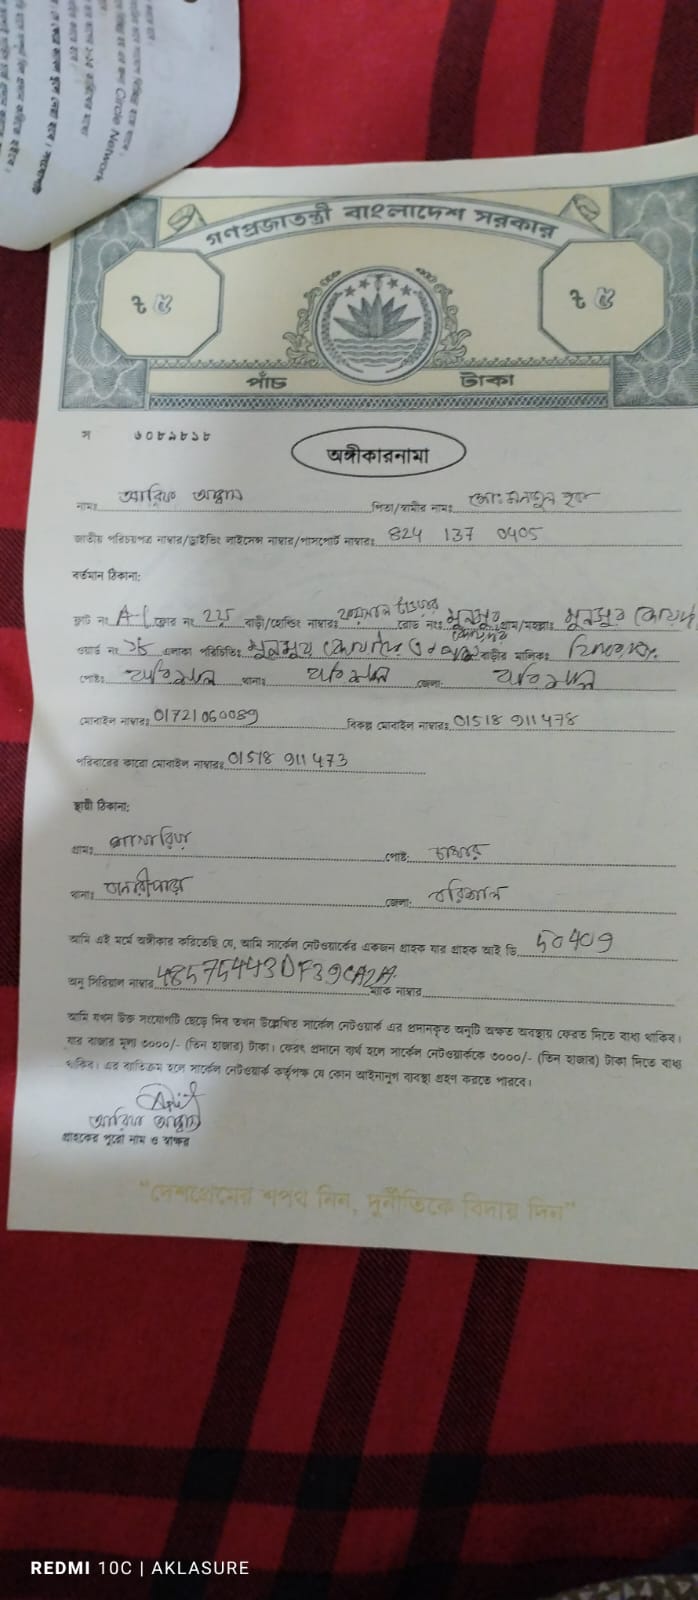 Circle Network
গণপ্রজাতন্ত্রী বাংলাদেশ সরকার
৳ ৫ ৳ ৫
পাঁচ টাকা
স ৬০৮৯৮১৮
অঙ্গীকারনামা
নামঃ আরিফ পিতা/স্বামীর নামঃ মোঃ হক
জাতীয় পরিচয়পত্র নাম্বার/ড্রাইভিং লাইসেন্স নাম্বার/পাসপোর্ট নাম্বারঃ 824 137 0405
বর্তমান ঠিকানা:
ফ্লাট নং A-1 ফ্লোর নং বাড়ী/হোল্ডিং নাম্বারঃ টাওয়ার রোড নংঃ মুনসুর গ্রাম/মহল্লাঃ মুনসুর
ওয়ার্ড নং এলাকা পরিচিতিঃ মুনসুর বাড়ীর মালিকঃ
পোষ্টঃ বরিশাল থানাঃ বরিশাল জেলা: বরিশাল
মোবাইল নাম্বারঃ 01721060089 বিকল্প মোবাইল নাম্বারঃ 01518 911478
পরিবারের কারো মোবাইল নাম্বারঃ 01518 911473
স্থায়ী ঠিকানা:
গ্রামঃ পোষ্ট: চাখার
থানাঃ বানারীপাড়া জেলা: বরিশাল
আমি এই মর্মে অঙ্গীকার করিতেছি যে, আমি সার্কেল নেটওয়ার্কের একজন গ্রাহক যার গ্রাহক আই ডি 50409
অনু সিরিয়াল নাম্বার 48575443DF39CA2A ম্যাক নাম্বার
আমি যখন উক্ত সংযোগটি ছেড়ে দিব তখন উল্লেখিত সার্কেল নেটওয়ার্ক এর প্রদানকৃত অনুটি অক্ষত অবস্থায় ফেরত দিতে বাধ্য থাকিব।
যার বাজার মূল্য ৩০০০/- (তিন হাজার) টাকা। ফেরৎ প্রদানে ব্যর্থ হলে সার্কেল নেটওয়ার্ককে ৩০০০/- (তিন হাজার) টাকা দিতে বাধ্য
থাকিব। এর ব্যতিক্রম হলে সার্কেল নেটওয়ার্ক কর্তৃপক্ষ যে কোন আইনানুগ ব্যবস্থা গ্রহণ করতে পারবে।
আরিফ
গ্রাহকের পুরো নাম ও স্বাক্ষর
"দেশপ্রেমের শপথ নিন, দুর্নীতিকে বিদায় দিন"
REDMI 10C | AKLASURE